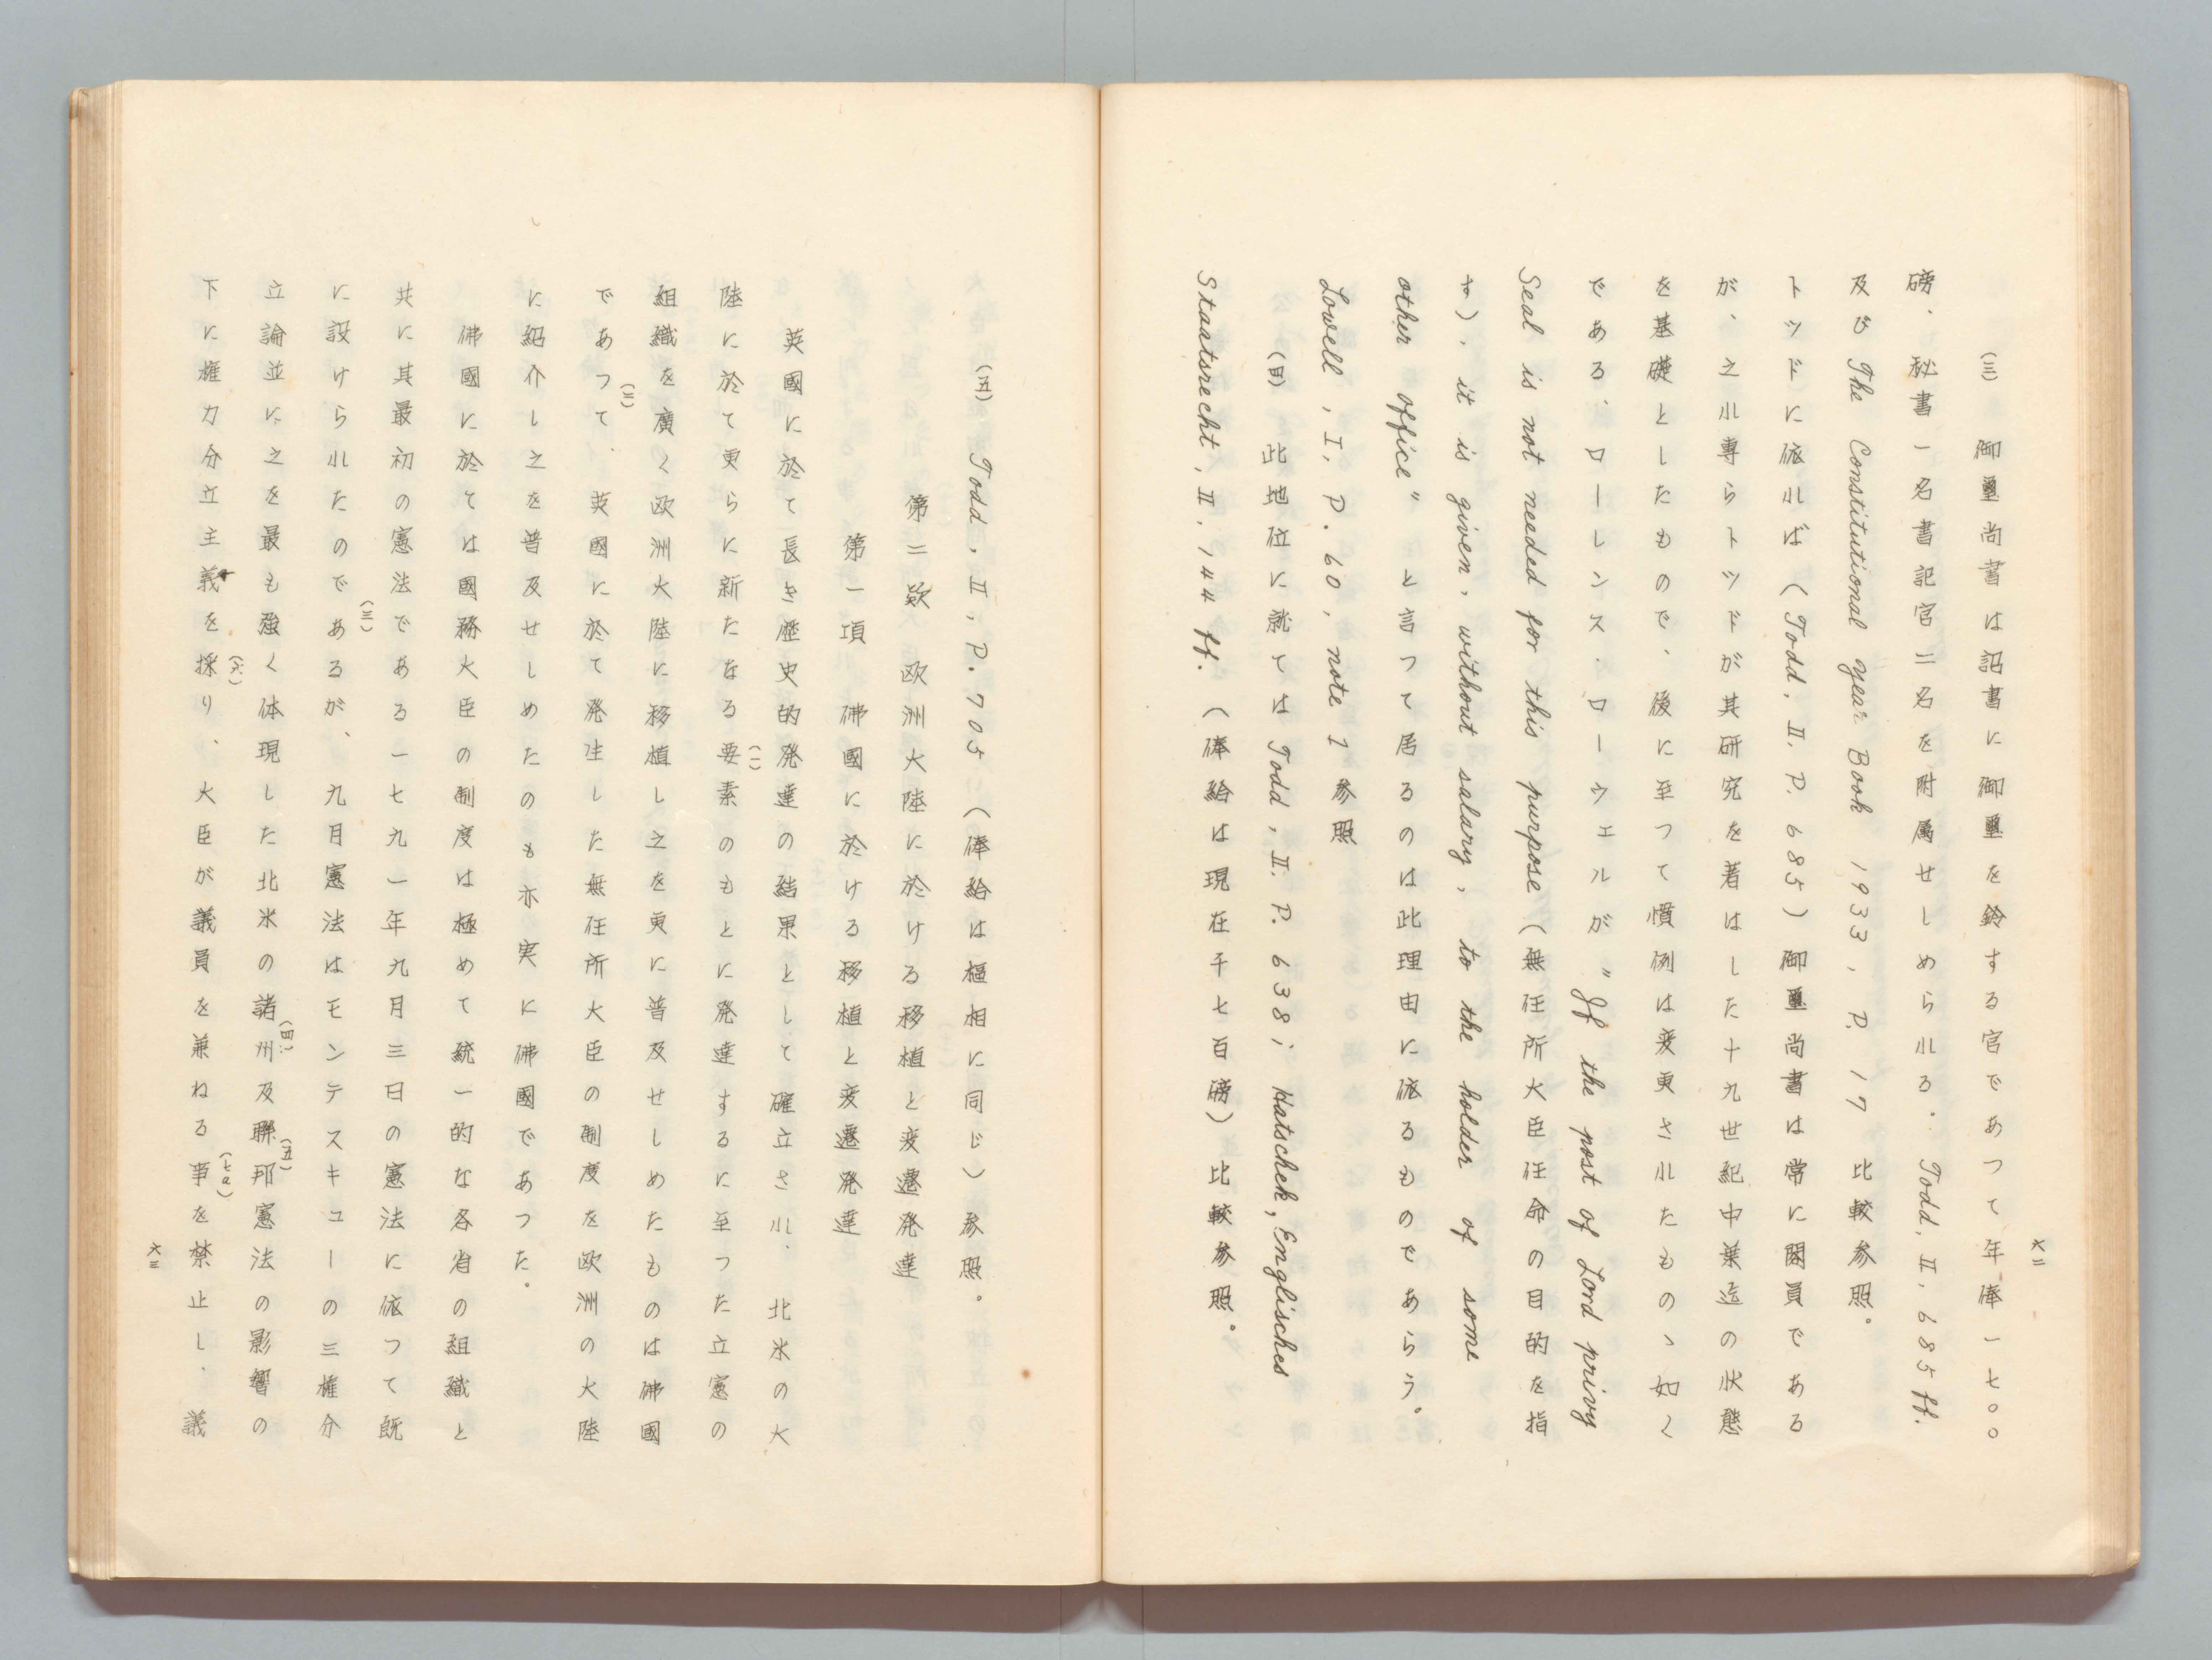 六二
(三)　御璽尚書は詔書に御璽を鈴する官であつて年俸一七〇〇
磅、秘書一名書記官二名を附属せしめられる。Todd, II, 685 ff.
及び The Constitutional year Book 1933, P. 17 比較参照。
トツドに依れば（Todd, II. P. 685）御璽尚書は常に閣員である
が、之れ専らトツドが其研究を著はした十九世紀中葉迄の状態
を基礎としたもので、後に至つて慣例は変更されたものゝ如く
である、ローレンス・ローウエルが "If the post of Lord privy
Seal is not needed for this purpose（無任所大臣任命の目的を指
す）, it is given, without salary, to the holder of some
other office" と言つて居るのは此理由に依るものであらう。
Lowell, I, P. 60, note 1 参照
(四)　此地位に就ては Todd, II. P. 638; Hatschek, Englisches
Staatsrecht, II, 144 ff.（俸給は現在千七百磅）比較参照。
(五)　Todd, II, P. 705（俸給は樞相に同じ）参照。
第二欵　欧洲大陸に於ける移植と変遷発達
第一項　佛國に於ける移植と変遷発達
英國に於て長き歴史的発達の結果として確立され、北米の大
陸に於て更らに新たなる要素(一)のもとに発達するに至つた立憲の
組織を廣く欧洲大陸に移植し之を更に普及せしめたものは佛國
であつて(二)、英國に於て発生した無任所大臣の制度を欧洲の大陸
に紹介し之を普及せしめたのも亦実に佛國であつた。
佛國に於ては國務大臣の制度は極めて統一的な各省の組織と
共に其最初の憲法である一七九一年九月三日の憲法に依つて既
に設けられたのである(三)が、九月憲法はモンテスキユーの三権分
立論並に之を最も強く体現した北米の諸州(四)及聯邦(五)憲法の影響の
下に権力分立主義を採り(六)、大臣が議員を兼ねる事(七a)を禁止し、議
六三